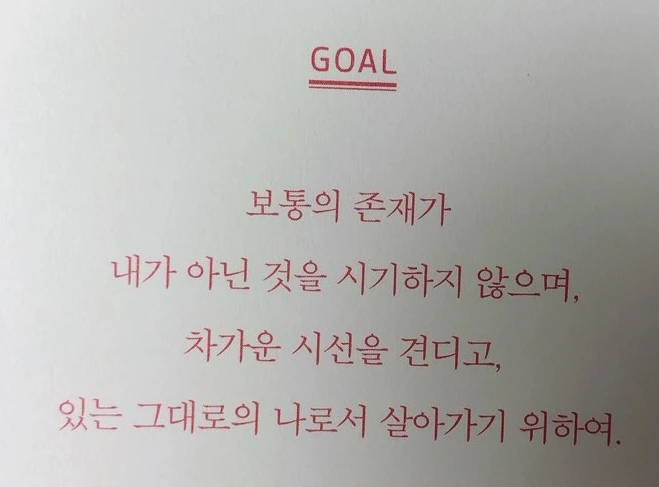 GOAL
보통의 존재가
내가 아닌 것을 시기하지 않으며,
차가운 시선을 견디고,
있는 그대로의 나로서 살아가기 위하여.